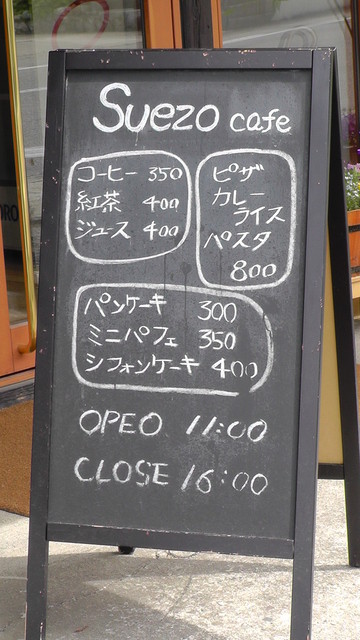 Suezo cafe
コーヒー 350
紅茶 400
ジュース 400
ピザ
カレー
ライス
パスタ
800
パンケーキ 300
ミニパフェ 350
シフォンケーキ 400
OPEO 11:00
CLOSE 16:00